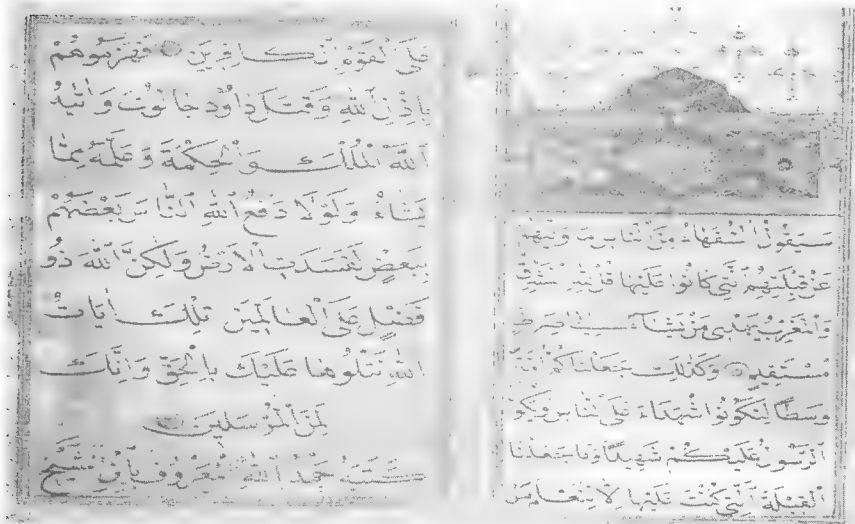 سَيَقُولُ السُّفَهَاءُ مِنَ النَّاسِ مَا وَلّٰيهُمْ
عَنْ قِبْلَتِهِمُ الَّتِي كَانُوا عَلَيْهَا قُلْ لِلّٰهِ الْمَشْرِقُ
وَالْمَغْرِبُ يَهْدِي مَنْ يَشَاءُ اِلٰى صِرَاطٍ
مُسْتَقِيمٍ وَكَذٰلِكَ جَعَلْنَاكُمْ اُمَّةً
وَسَطًا لِتَكُونُوا شُهَدَاءَ عَلَى النَّاسِ وَيَكُونَ
الرَّسُولُ عَلَيْكُمْ شَهِيدًا وَمَا جَعَلْنَا
الْقِبْلَةَ الَّتِي كُنْتَ عَلَيْهَا اِلَّا لِنَعْلَمَ مَنْ
عَلَى الْقَوْمِ الْكَافِرِينَ فَهَزَمُوهُمْ
بِاِذْنِ اللّٰهِ وَقَتَلَ دَاوُدُ جَالُوتَ وَاٰتٰيهُ
اللّٰهُ الْمُلْكَ وَالْحِكْمَةَ وَعَلَّمَهُ مِمَّا
يَشَاءُ وَلَوْلَا دَفْعُ اللّٰهِ النَّاسَ بَعْضَهُمْ
بِبَعْضٍ لَفَسَدَتِ الْاَرْضُ وَلٰكِنَّ اللّٰهَ ذُو
فَضْلٍ عَلَى الْعَالَمِينَ تِلْكَ اٰيَاتُ
اللّٰهِ نَتْلُوهَا عَلَيْكَ بِالْحَقِّ وَاِنَّكَ
لَمِنَ الْمُرْسَلِينَ
كَتَبَهُ حَمْدُ اللّٰهِ الْمَعْرُوفُ بِابْنِ الشَّيْخِ